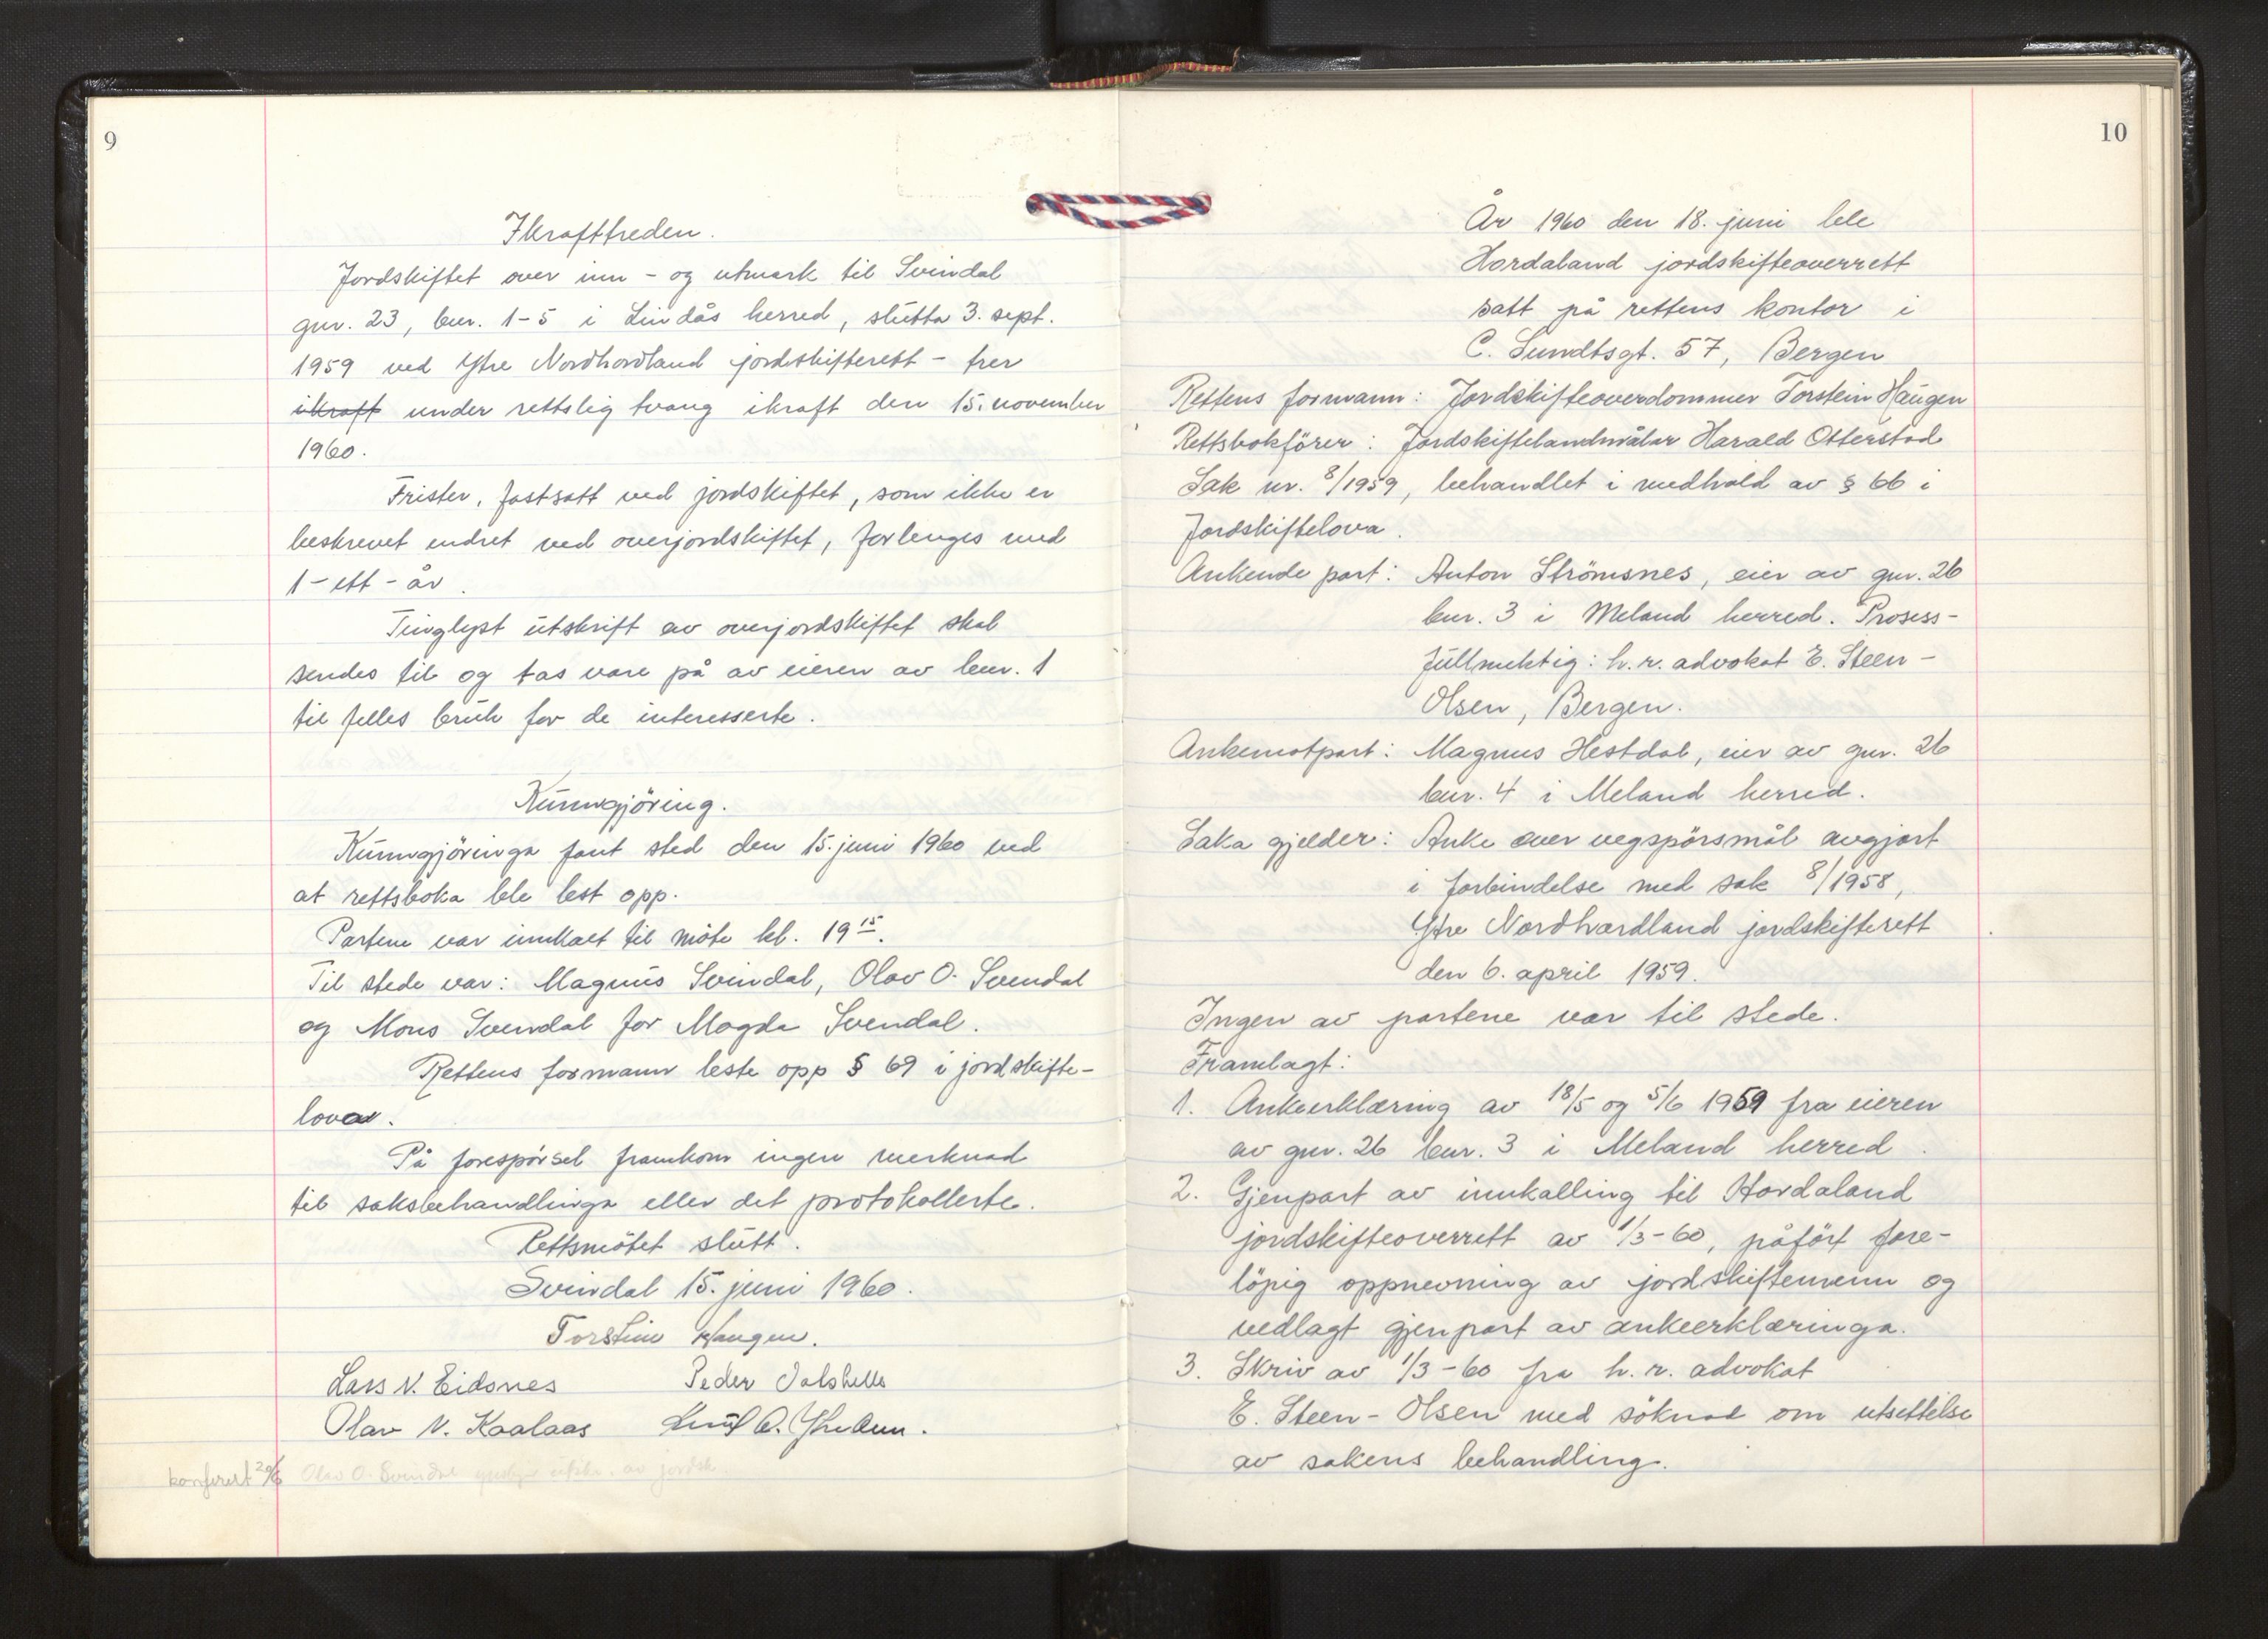 9
Ikrafttreden.
Jordskiftet over inn- og utmark til Svindal
gnr. 23, bnr. 1-5 i Lindås herred, slutta 3. sept.
1959 ved Ytre Nordhordland jordskifterett - trer
ikraft under rettslig tvang ikraft den 15. november
1960.
Frister, fastsatt ved jordskiftet, som ikke er
beskrevet endret ved overjordskiftet, forlenges med
1 - ett - år.
Tinglyst utskrift av overjordskiftet skal
sendes til og tas vare på av eieren av bnr. 1
til felles bruk for de interesserte.
Kunngjöring.
Kunngjöringa fant sted den 15. juni 1960 ved
at rettsboka ble lest opp.
Partene var innkalt til möte kl. 19 15.
Til stede var: Magnus Svindal, Olav O. Svendal
og Mons Svendal for Magda Svendal.
Rettens formann leste opp § 69 i jordskifte-
lova.
På forespörsel framkom ingen merknad
til saksbehandlinga eller det protokollerte.
Rettsmötet slutt.
Svindal 15. juni 1960.
Torstein Haugen.
Lars N. Eidsnes Peder
Olav N. Kaalaas
konferert 20/6 Olav O. Svindal av jordsk.
10
År 1960 den 18. juni ble
Hordaland jordskifteoverrett
satt på rettens kontor i
C. Sundtsgt. 57, Bergen
Rettens formann: Jordskifteoverdommer Torstein Haugen
Rettsbokförer: Jordskiftelandmåler Harald Otterstad
Sak nr. 8/1959, behandlet i medhold av § 66 i
Jordskiftelova.
Ankende part: Anton Strömsnes, eier av gnr. 26
bnr. 3 i Meland herred. Prosess-
fullmektig: h.r. advokat E. Steen-
Olsen, Bergen.
Ankemotpart: Magnus Hestdal, eier av gnr. 26
bnr. 4 i Meland herred.
Saka gjelder: Anke over vegspörsmål avgjort
i forbindelse med sak 8/1958,
Ytre Nordhordland jordskifterett
den 6. april 1959.
Ingen av partene var til stede.
Framlagt:
1. Ankeerklæring av 18/5 og 5/6 1959 fra eieren
av gnr. 26 bnr. 3 i Meland herred.
2. Gjenpart av innkalling til Hordaland
jordskifteoverrett av 1/3-60, påfört fore-
löpig oppnevning av jordskiftemenn og
vedlagt gjenpart av ankeerklæringa.
3. Skriv av 1/3-60 fra h.r. advokat
E. Steen-Olsen med söknad om utsettelse
av sakens behandling.